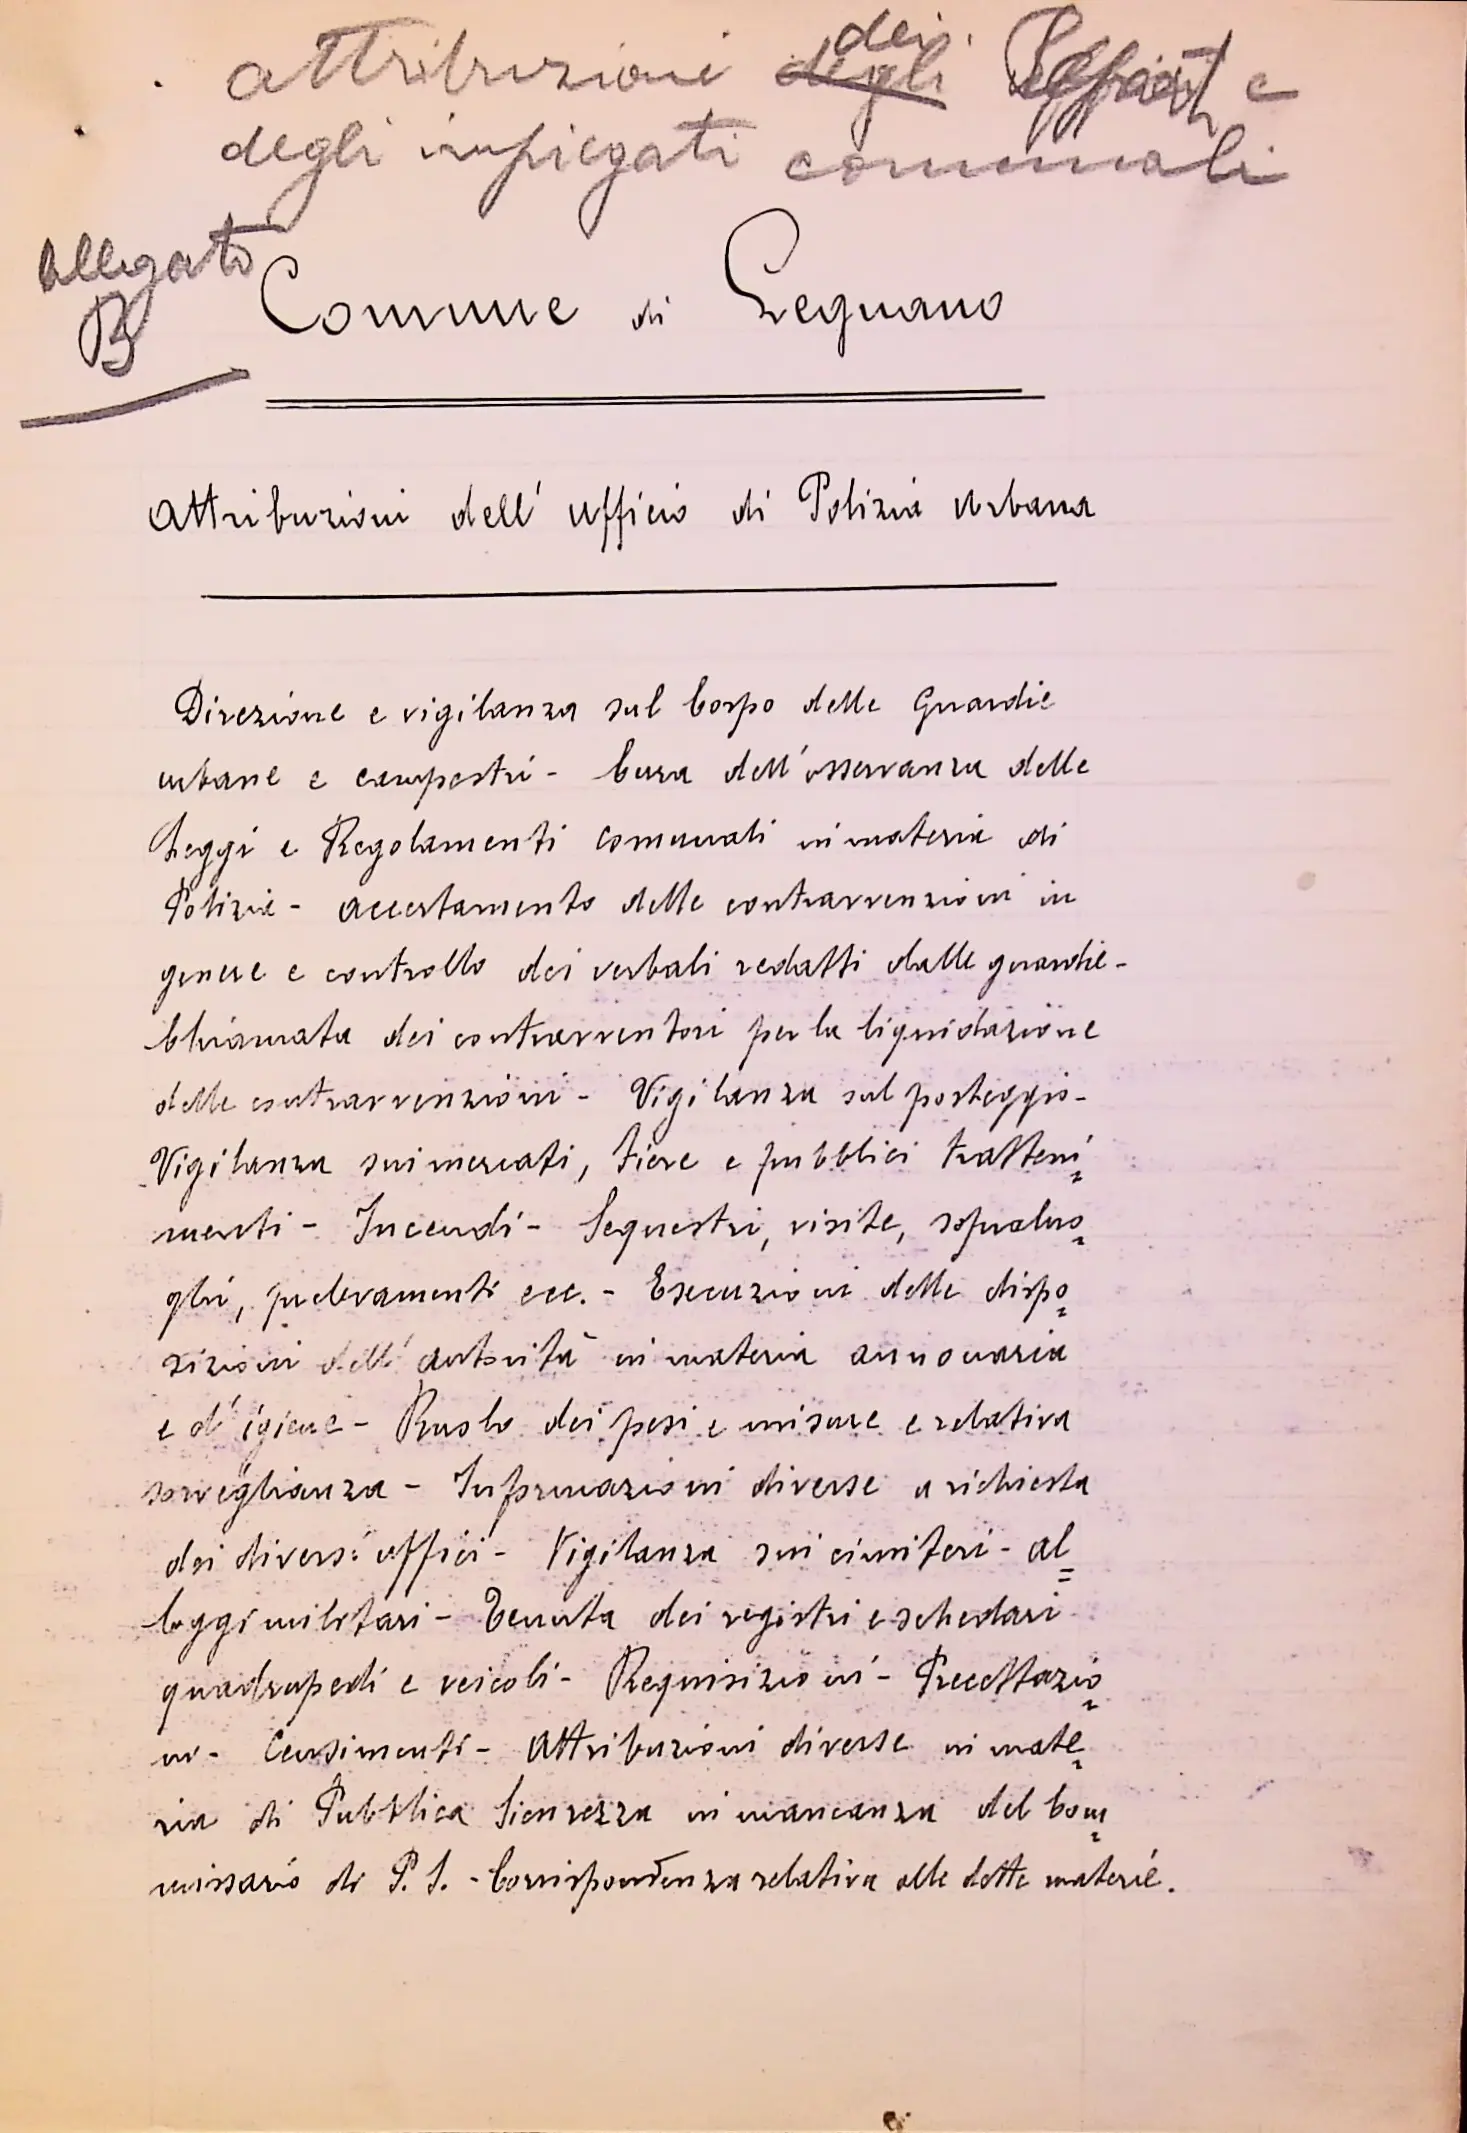 attribuzioni degli dei e
degli impiegati comunali
allegato
B
Comune di Legnano
Attribuzioni dell' Ufficio di Polizia Urbana
Direzione e vigilanza sul Corpo delle Guardie
urbane e campestri - Cura dell'osservanza delle
Leggi e Regolamenti comunali in materia di
Polizia - Accertamento delle contravvenzioni in
genere e controllo dei verbali redatti dalle guardie -
Chiamata dei contravventori per la liquidazione
delle contravvenzioni - Vigilanza sul posteggio -
Vigilanza sui mercati, fiere e pubblici tratteni=
menti - Incendi - Sequestri, visite, sopraluo=
ghi, prelevamenti ecc. - Esecuzioni delle dispo=
sizioni dell' autorità in materia annonaria
e d' igiene - Ruolo dei pesi e misure e relativa
sorveglianza - Informazioni diverse a richiesta
dei diversi uffici - Vigilanza sui cimiteri - Al=
loggi militari - Tenuta dei registri e schedari
quadrupedi e veicoli - Requisizioni - Precettazio=
ni - Censimenti - Attribuzioni diverse in mate=
ria di Pubblica Sicurezza in mancanza del Com=
missario di P. S. - Corrispondenza relativa alle dette materie.